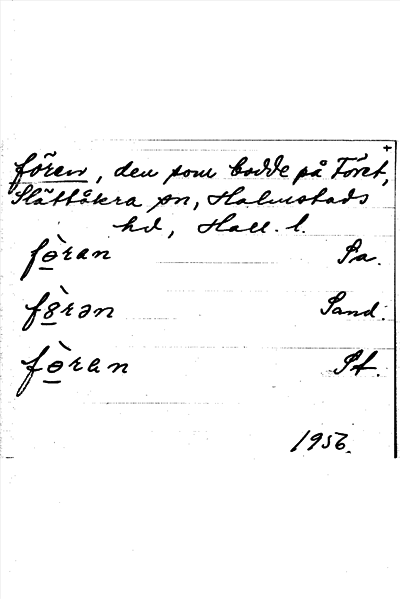 +
fören, den som bodde på Föret,
Slättåkra sn, Halmstads
hd, Hall. l.
fø̀ran Sa.
fø̀rən Sand.
fø̀ran St.
1956.